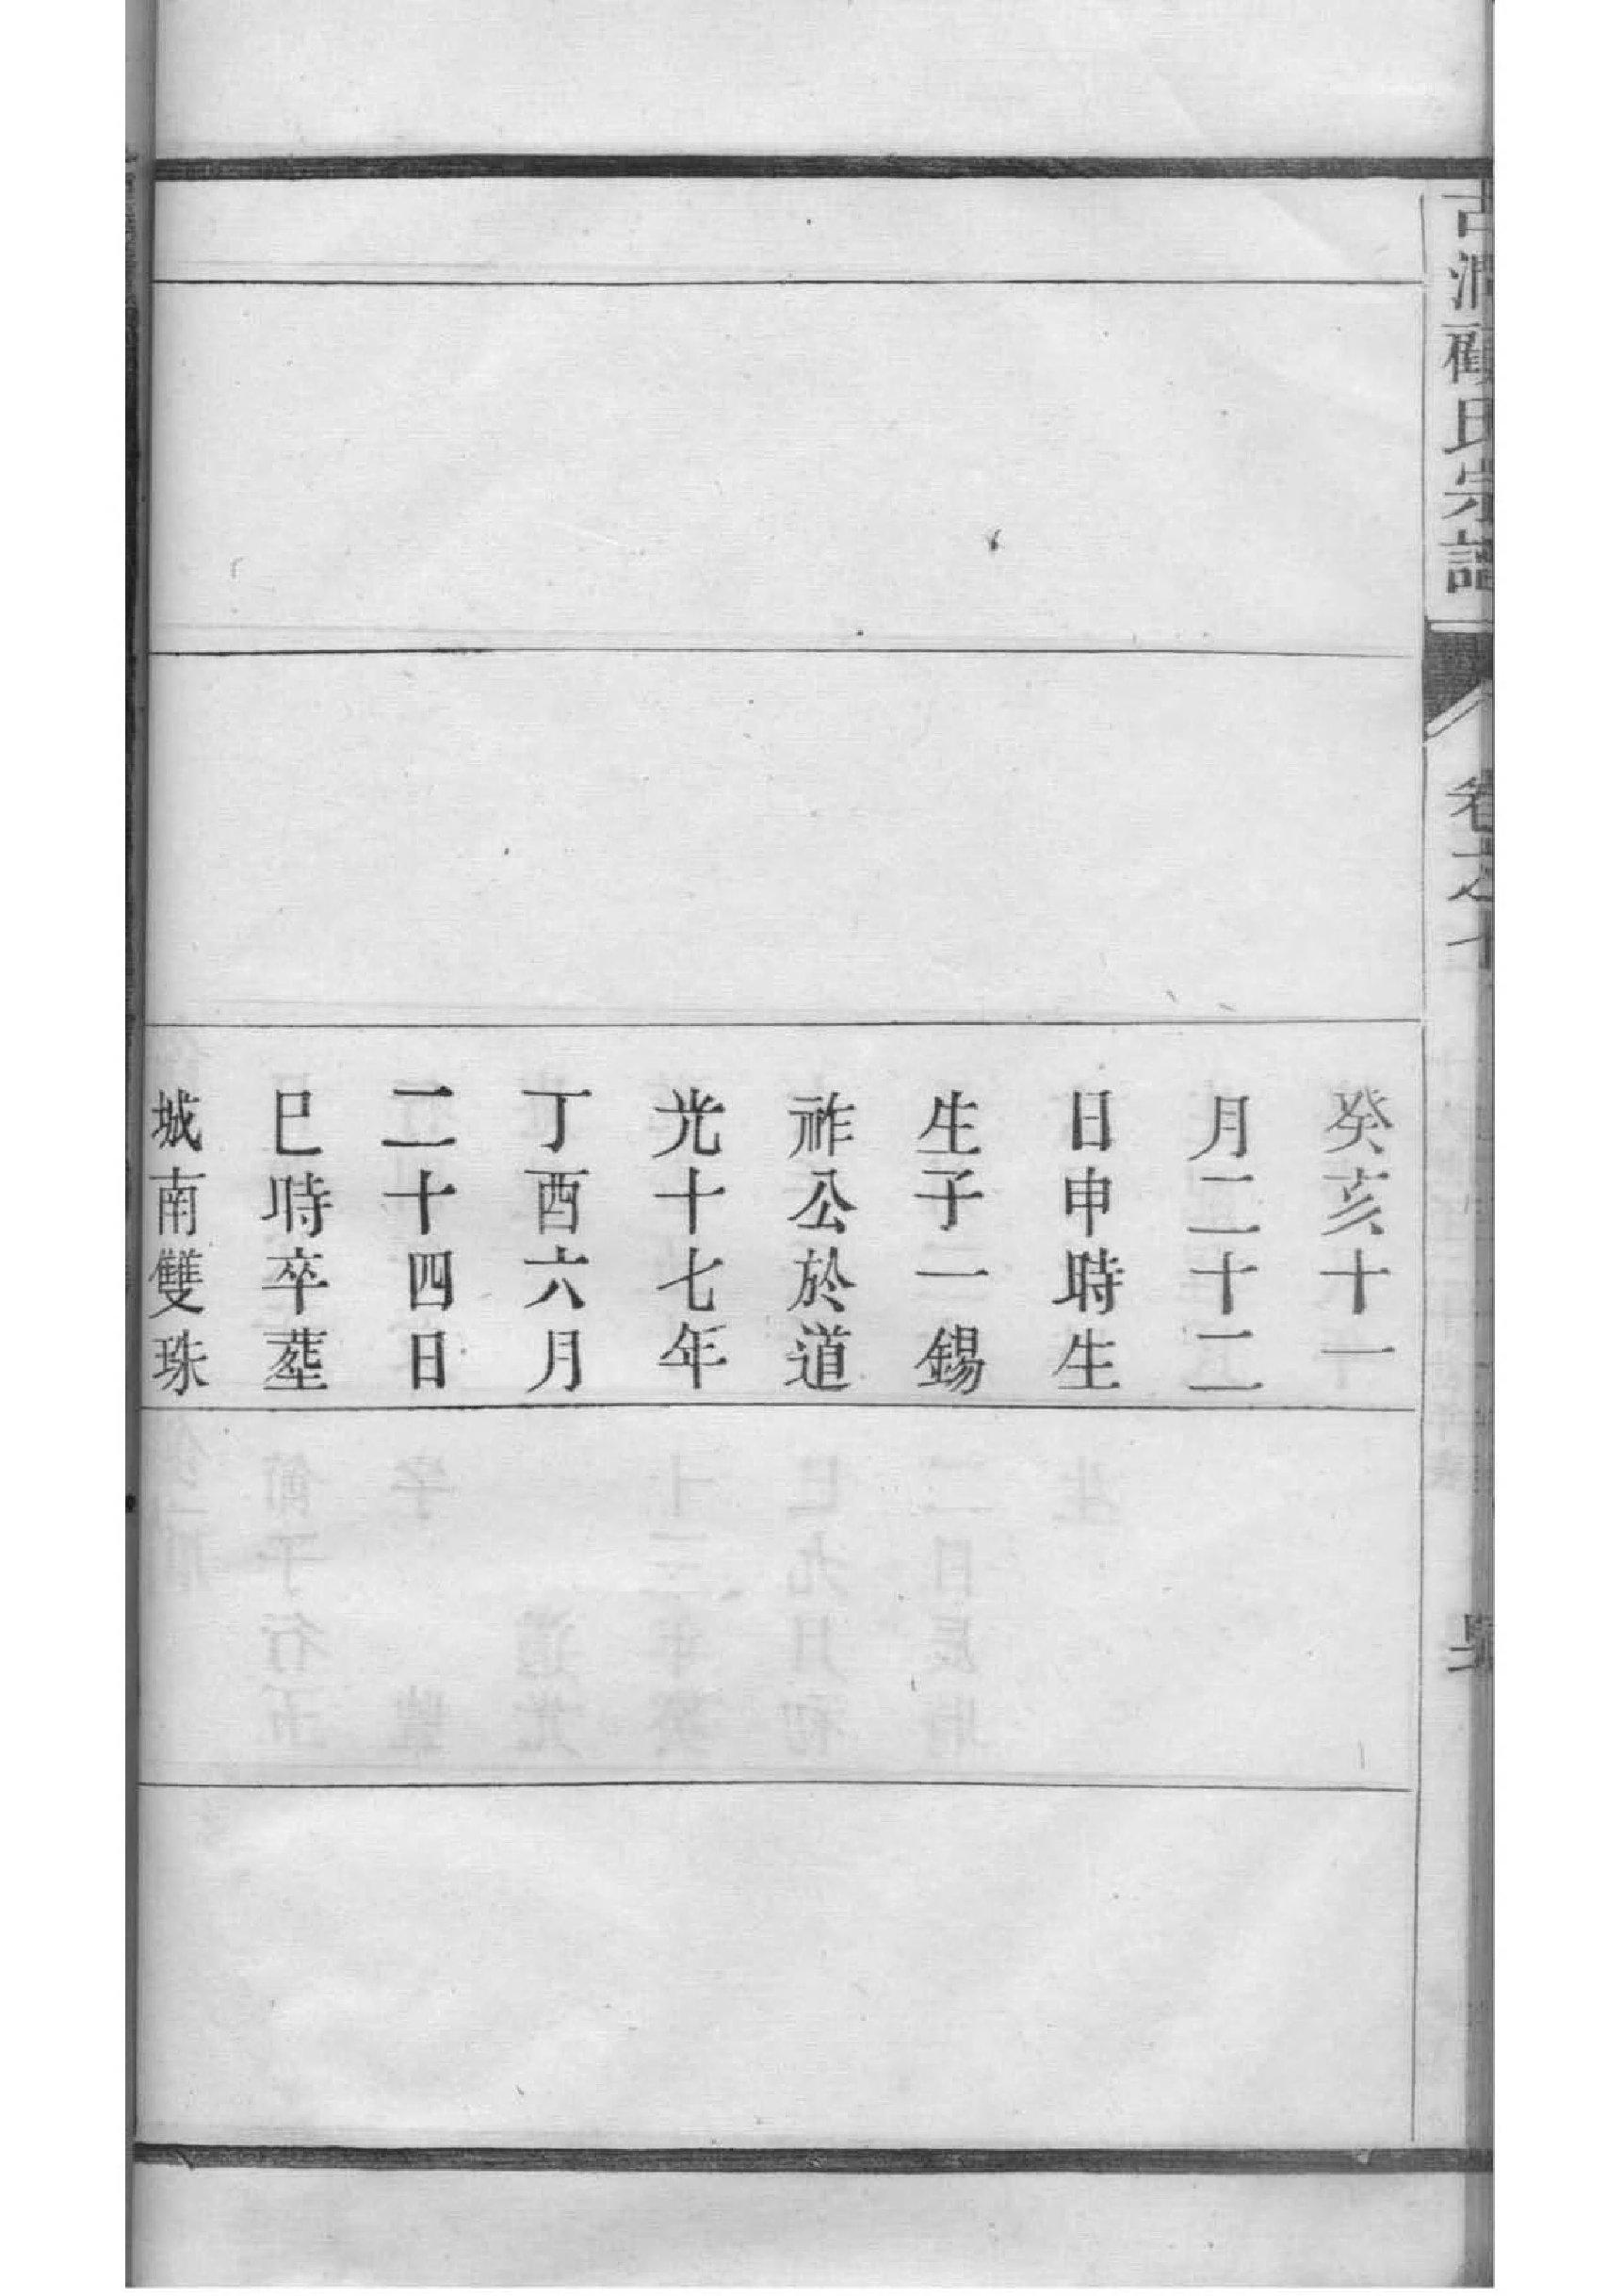 古潤顧氏宗譜
卷之十
癸亥十一
月二十二
日申時生
生子一錫
祚公於道
光十七年
丁酉六月
二十四日
巳時卒塟
城南雙珠